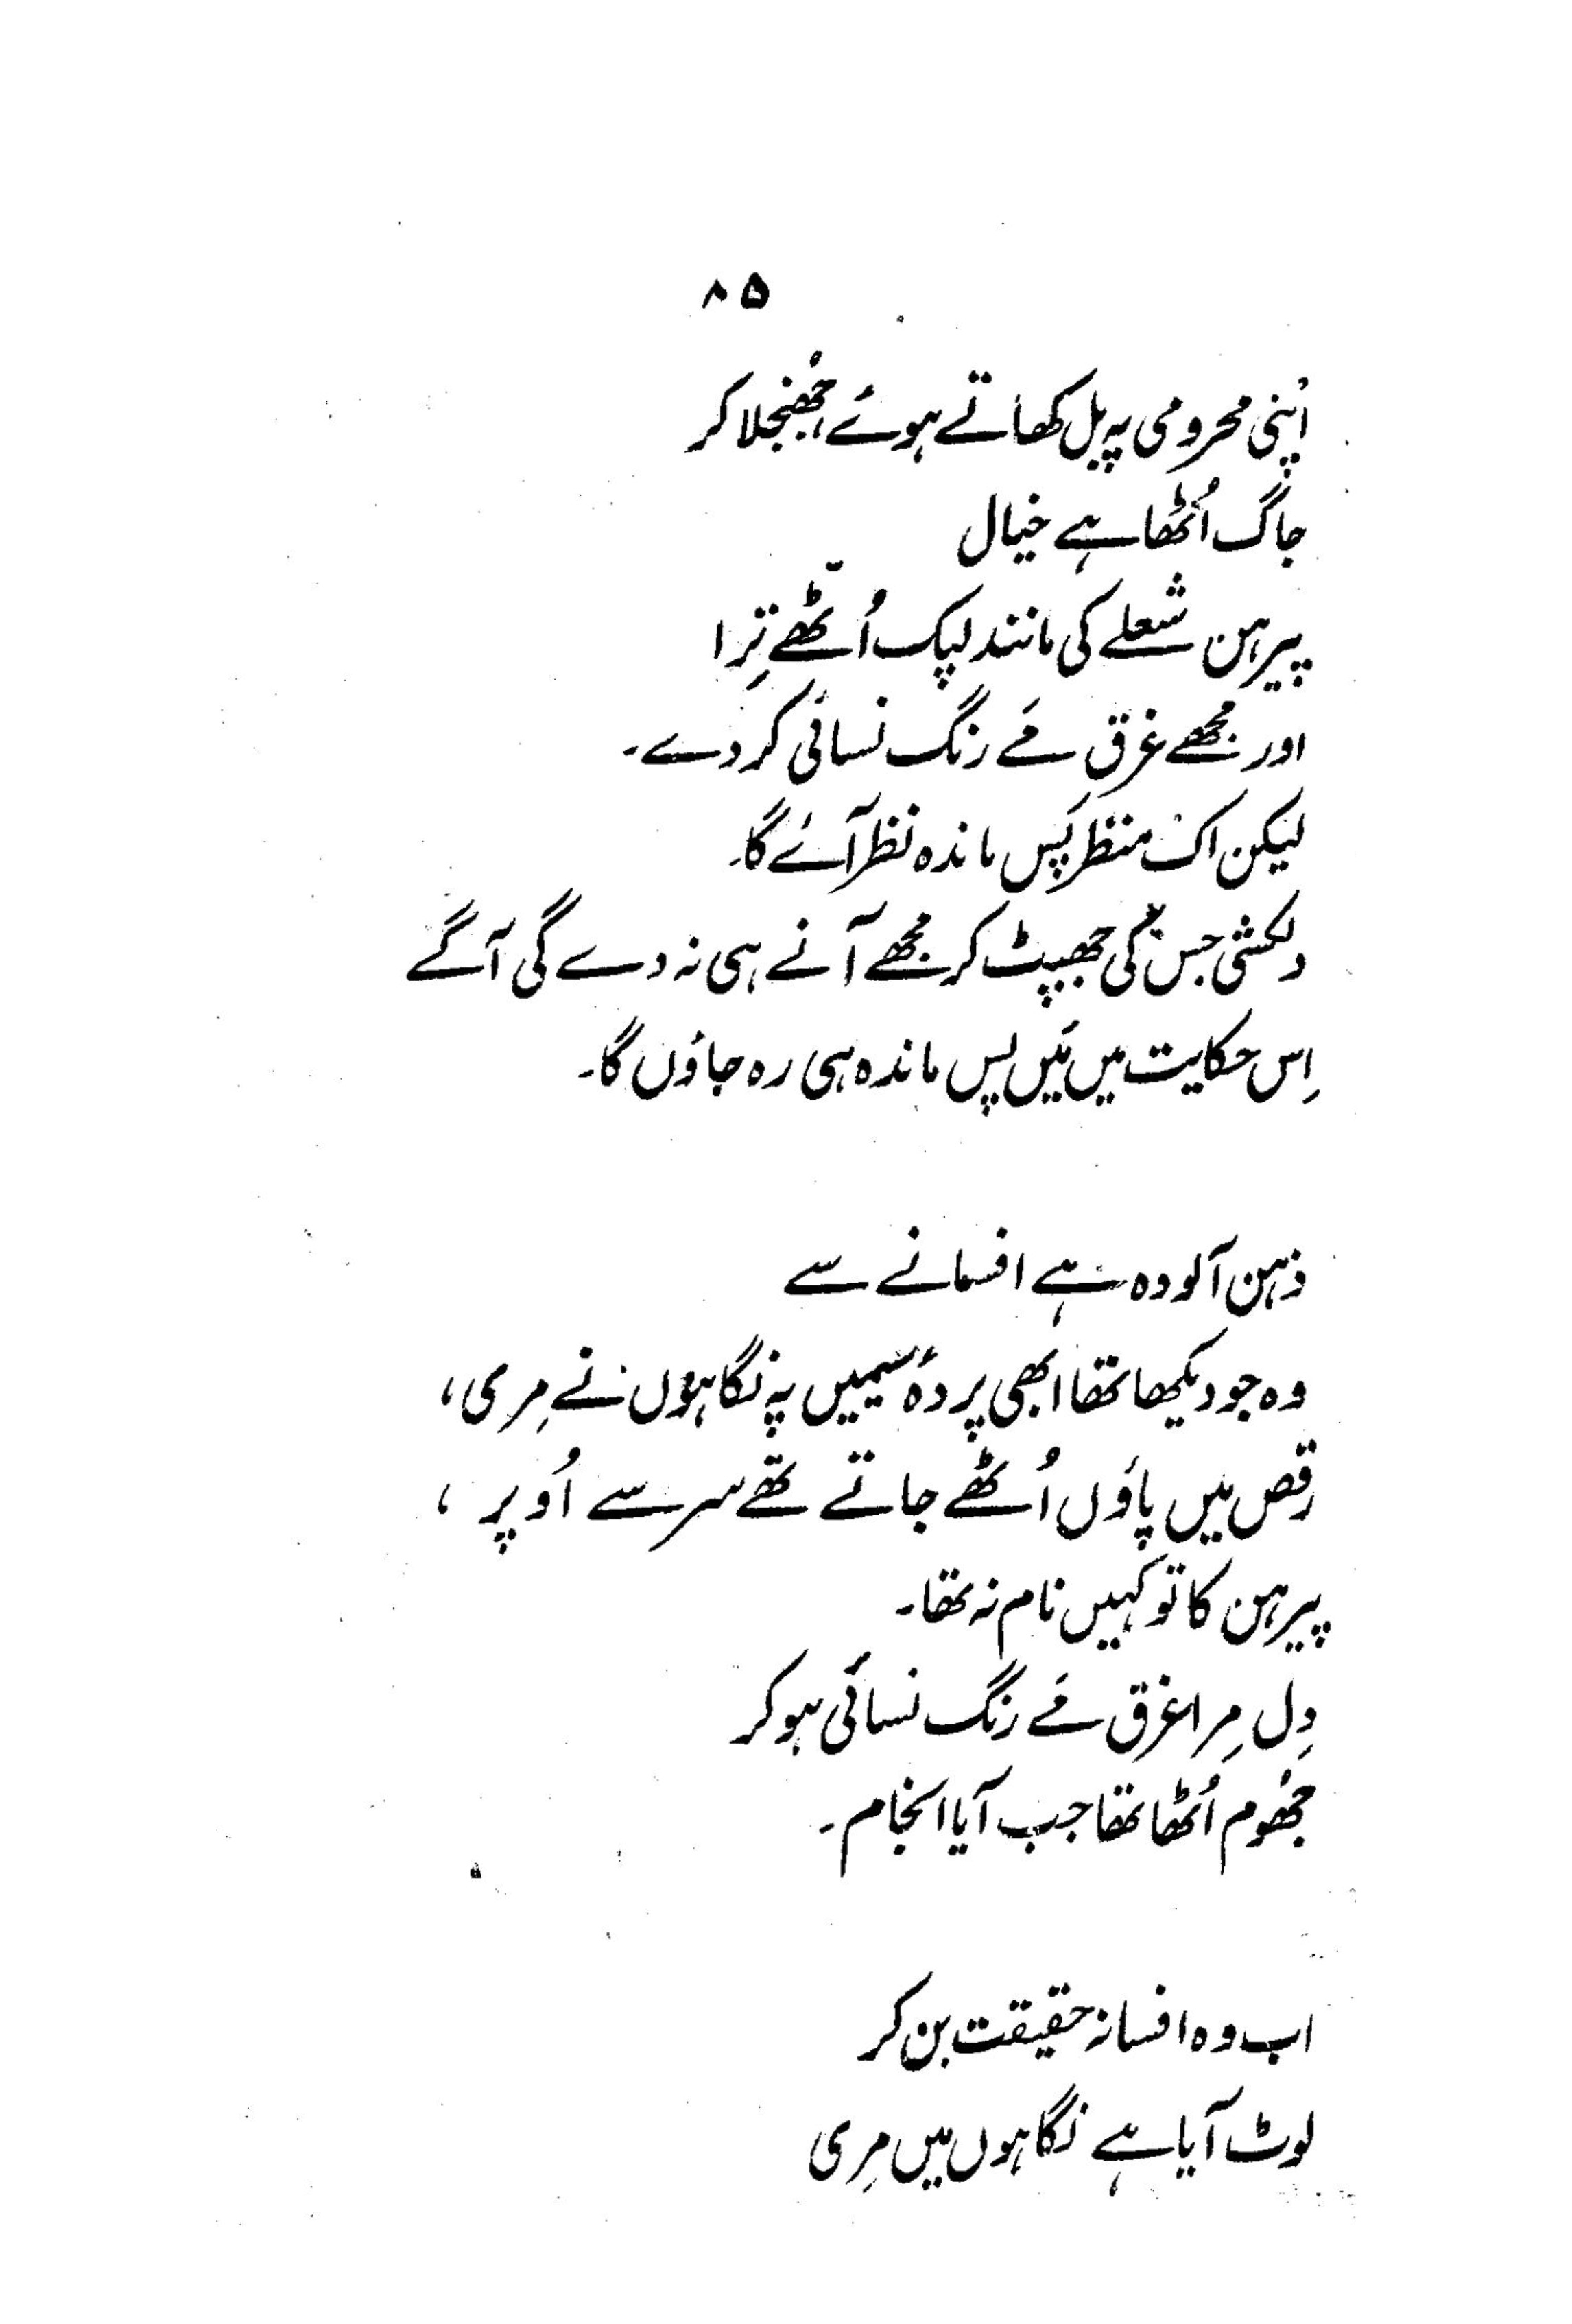 ۸۵
اپنی محرومی پہ بل کھاتے ہوئے، جھنجلا کر
جاگ اُٹھا ہے خیال
پیرہن شعلے کی مانند لپک اُٹھّے تِرا
اور مجھے غرقِ مَے رنگ نسائی کر دے۔
لیکن اک منظرِ پَس ماندہ نظر آئے گا۔
دلکشی جس کی جھپٹ کر مجھے آنے ہی نہ دے گی آگے
اِس حکایت میں مَیں پس ماندہ ہی رہ جاؤں گا۔
ذہن آلودہ ہے افسانے سے
وہ جو دیکھا تھا ابھی پردۂ سیمیں پہ نگاہوں نے مِری،
رقص میں پاؤں اُٹھے جاتے تھے سر سے اُوپر،
پیرہن کا تو کہیں نام نہ تھا۔
دِل مِرا غرق مَے رنگ نسائی ہو کر
جھُوم اُٹھا تھا جب آیا انجام۔
اب وہ افسانہ حقیقت بن کر
لوٹ آیا ہے نگاہوں میں مِری